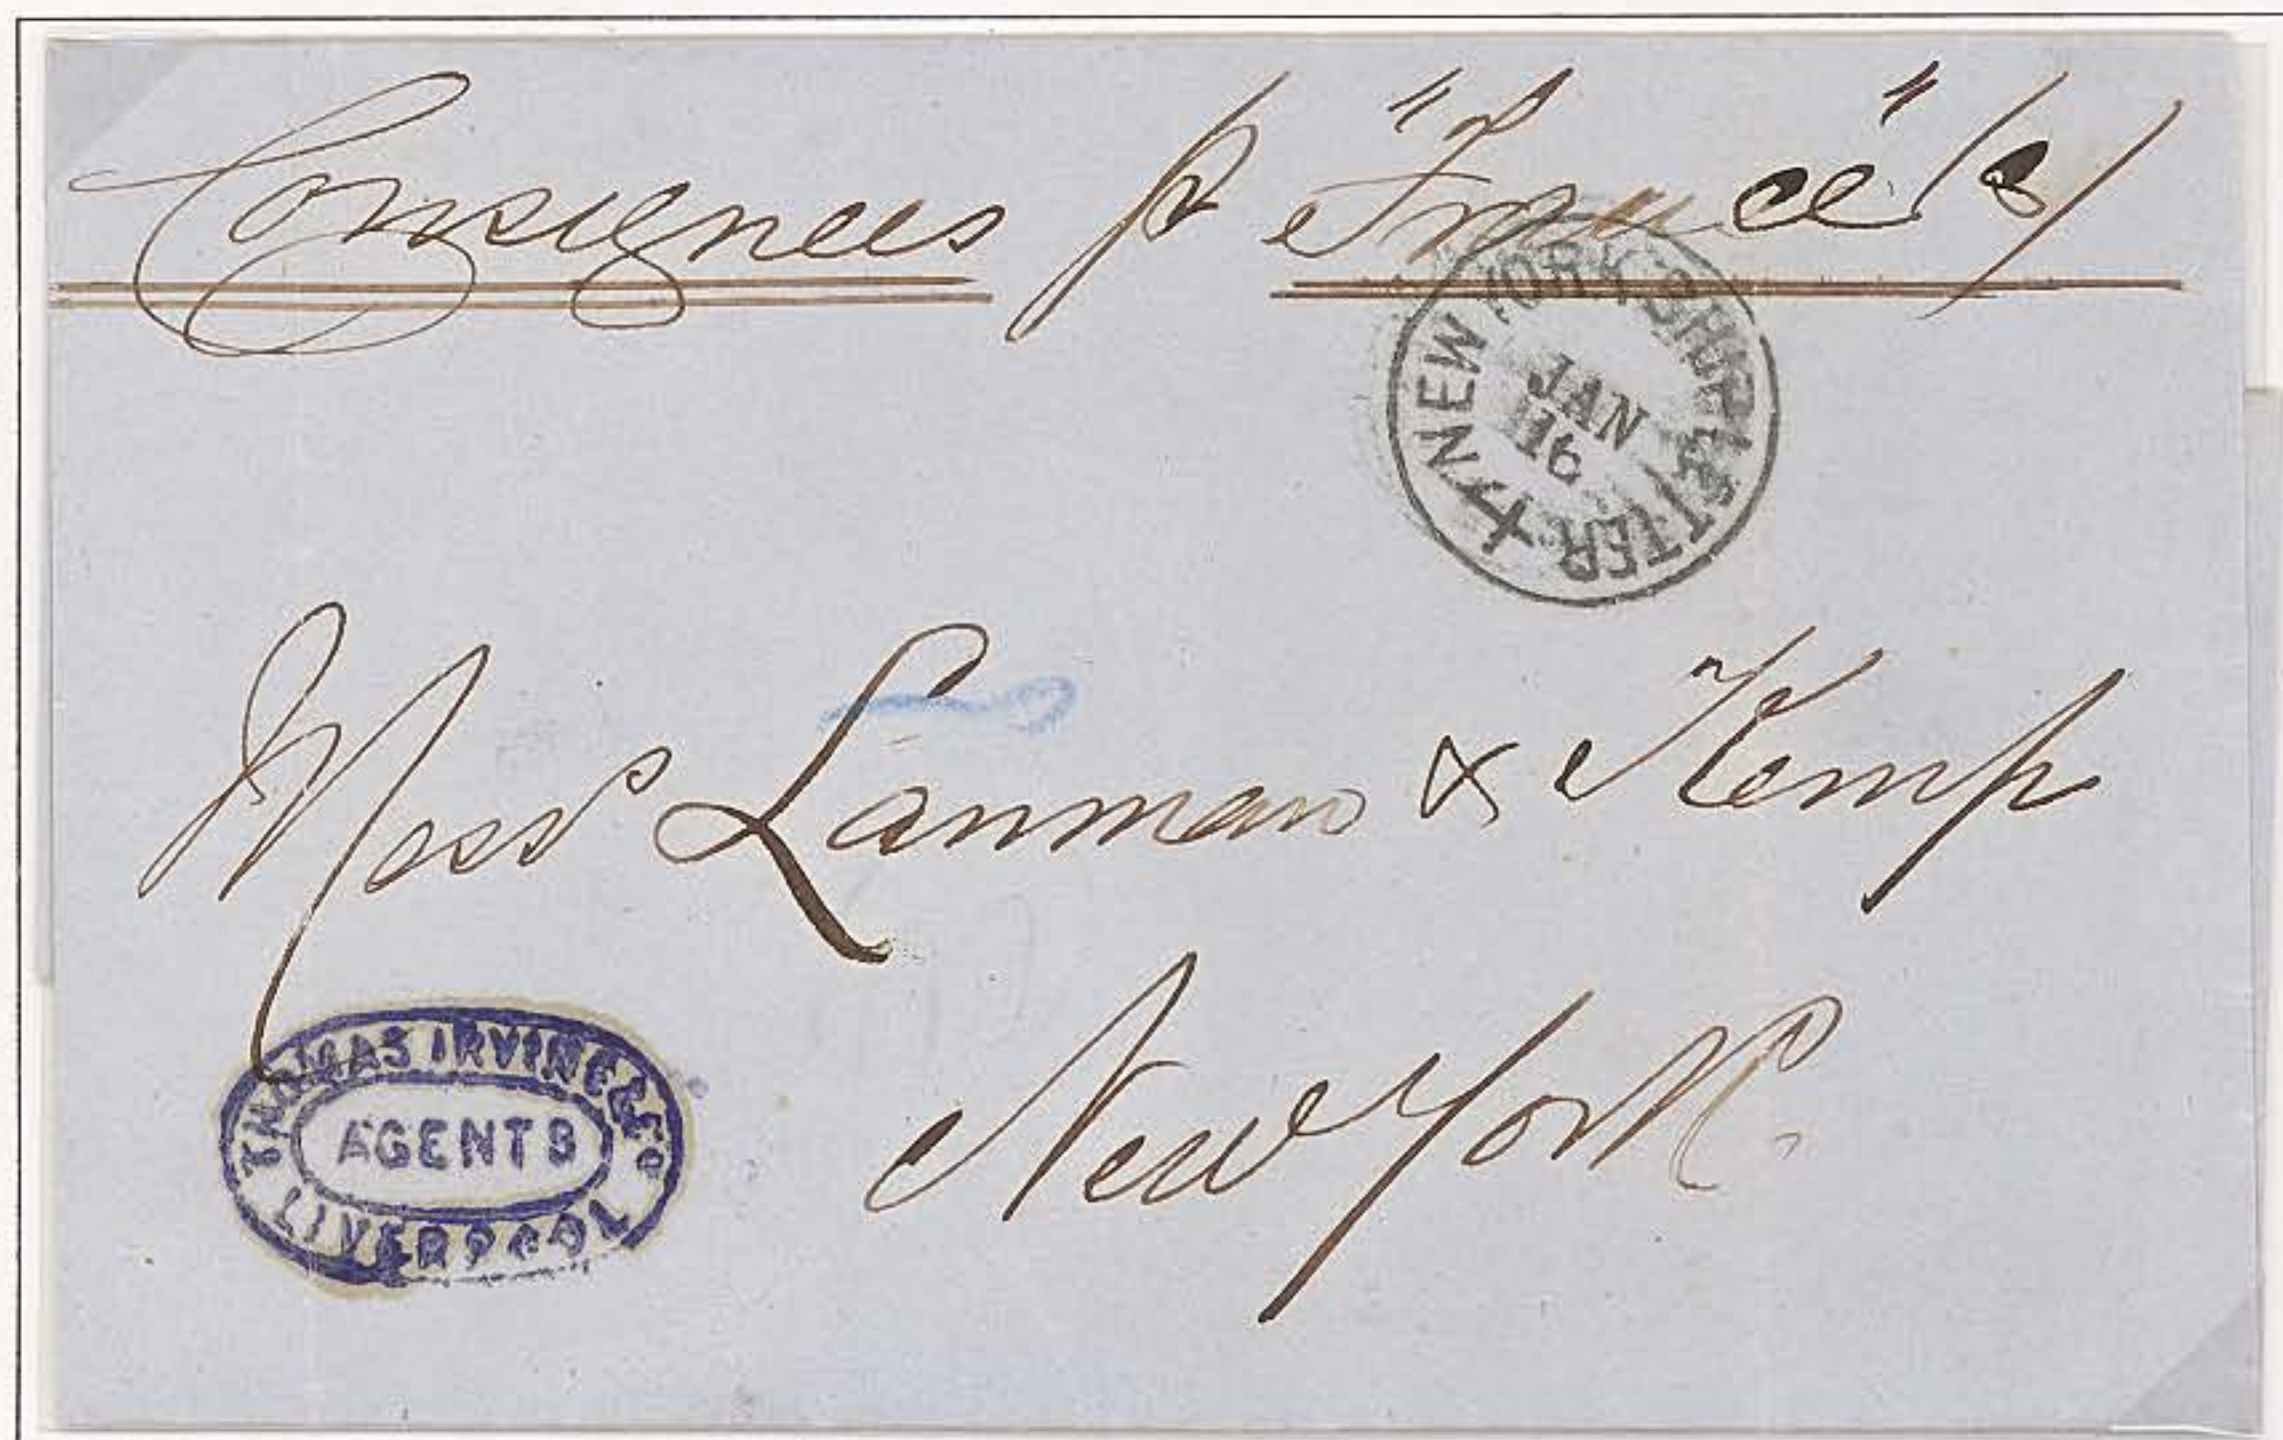 Consignees p "France" (s)
NEW YORK SHIP LETTER
JAN
16
Mess^rs Lanman & Kemp
New York
THOMAS IRVINE & Co
AGENTS
LIVERPOOL